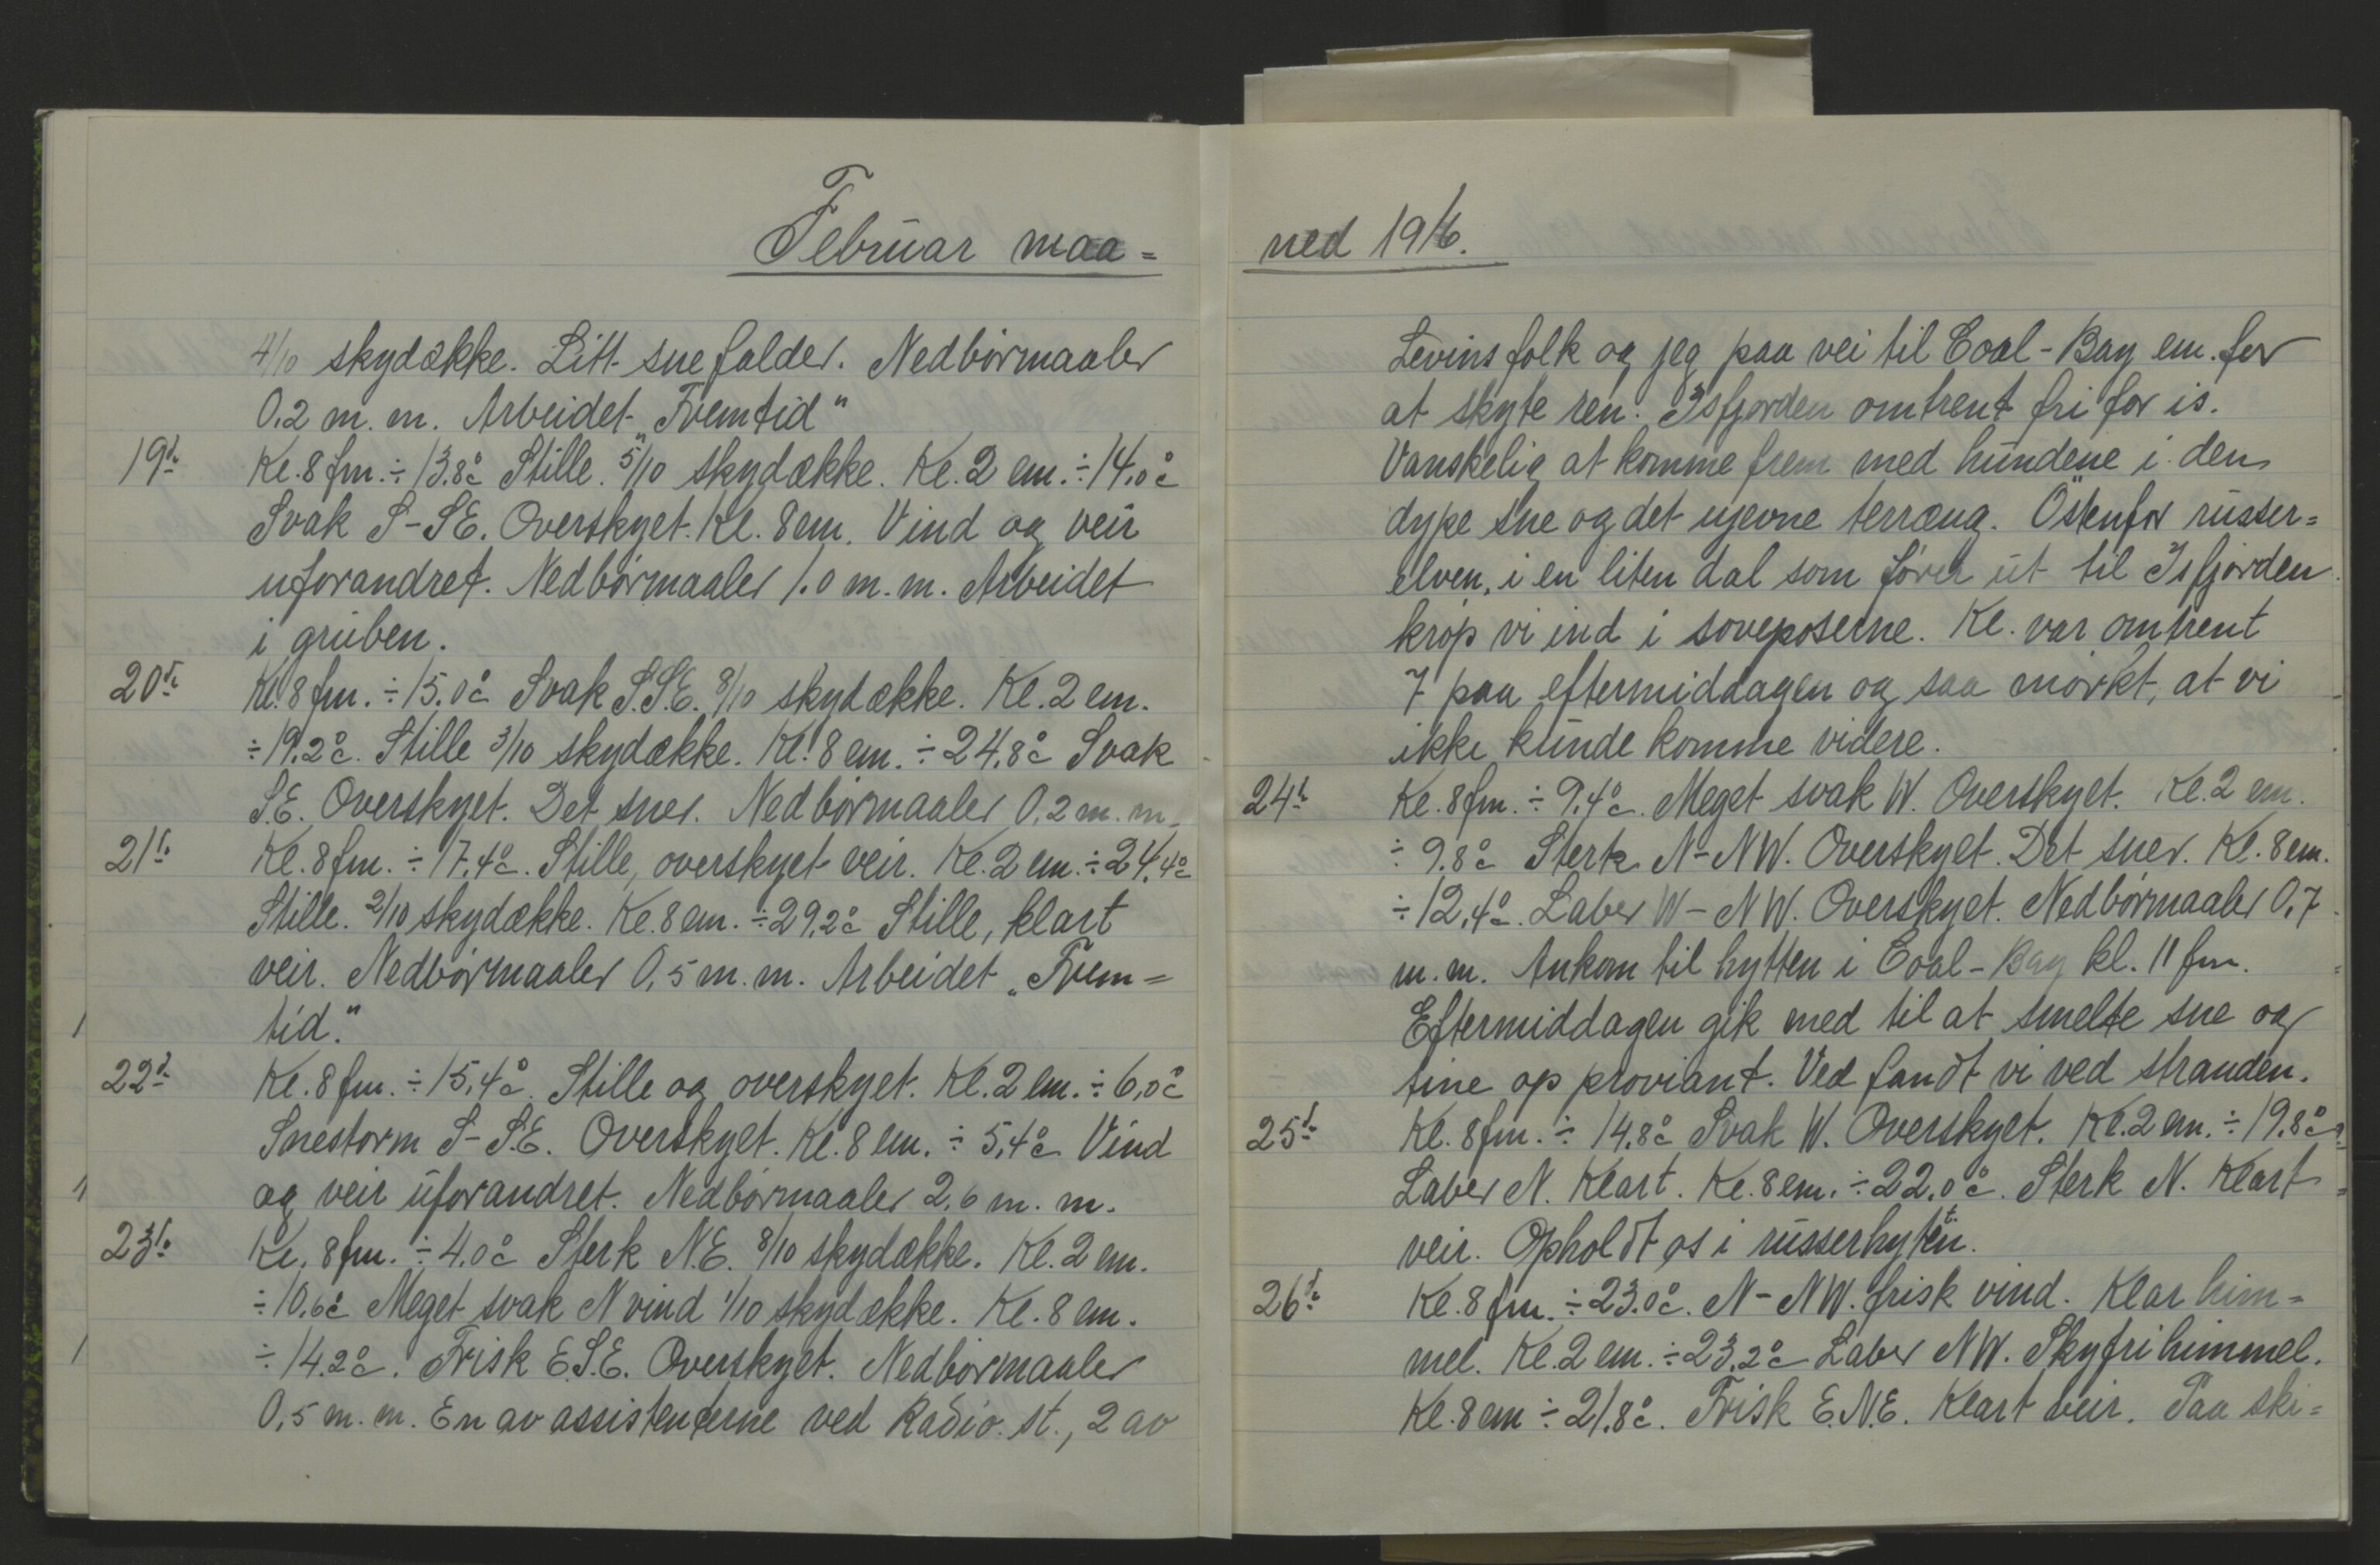 Februar maa=
4/10 skydække. Litt snefalder. Nedbörmaaler
0.2 m.m. Arbeidet „Fremtid"
19de Kl. 8 fm. ÷ 13.8°c Stille. 5/10 skydække. Kl. 2 em. ÷ 14.0°c
Svak S-SE. Overskyet. Kl. 8 em. Vind og veir
uforandret. Nedbörmaaler 1.0 m.m. Arbeidet
i gruben.
20de Kl. 8 fm. ÷ 15.0°c Svak S.S.E. 8/10 skydække. Kl. 2 em.
÷ 19.2°c. Stille 3/10 skydække. Kl. 8 em. ÷ 24.8°c Svak
S.E. Overskyet. Det sner. Nedbörmaaler 0.2 m.m.
21de Kl. 8 fm. ÷ 17.4°c. Stille, overskyet veir. Kl. 2 em. ÷ 24.4°c
Stille. 2/10 skydække. Kl. 8 em. ÷ 29.2°c Stille, klart
veir. Nedbörmaaler 0.5 m.m. Arbeidet „Frem=
tid."
22de Kl. 8 fm. ÷ 15.4°c. Stille og overskyet. Kl. 2 em. ÷ 6.0°c
Snestorm S-S.E. Overskyet. Kl. 8 em. ÷ 5.4°c Vind
og veir uforandret. Nedbörmaaler 2.6 m.m.
23de Kl. 8 fm. ÷ 4.0°c Sterk N.E. 8/10 skydække. Kl. 2 em.
÷ 10.6°c Meget svak N vind 1/10 skydække. Kl. 8 em.
÷ 14.2°c. Frisk E.S.E. Overskyet. Nedbörmaaler
0.5 m.m. En av assistenterne ved Radio. st., 2 av
ned 1916.
Levins folk og jeg paa vei til Coal-Bay em. for
at skyte ren. Isfjorden omtrent fri for is.
Vanskelig at komme frem med hundene i den
dype sne og det ujevne terræng. Östenfor russer=
elven, i en liten dal som förer ut til Isfjorden
kröp vi ind i soveposerne. Kl. var omtrent
7 paa eftermiddagen og saa mörkt, at vi
ikke kunde komme videre.
24de Kl. 8 fm. ÷ 9.4°c. Meget svak W. Overskyet. Kl. 2 em.
÷ 9.8°c Sterk N-NW. Overskyet. Det sner. Kl. 8 em.
÷ 12.4°c. Laber W-NW. Overskyet. Nedbörmaaler 0.7
m.m. Ankom til hytten i Coal-Bay kl. 11 fm.
Eftermiddagen gik med til at smelte sne og
tine op proviant. Ved fandt vi ved stranden.
25de Kl. 8 fm. ÷ 14.8°c Svak W. Overskyet. Kl. 2 em. ÷ 19.8°c
Laber N. Klart. Kl. 8 em. ÷ 22.0°c. Sterk N. Klart
veir. Opholdt os i russerhytten.
26de Kl. 8 fm. ÷ 23.0°c. N-NW. frisk vind. Klar him=
mel. Kl. 2 em. ÷ 23.2°c Laber NW. Skyfri himmel.
Kl. 8 em ÷ 21.8°c. Frisk E.N.E. Klart veir. Paa ski=